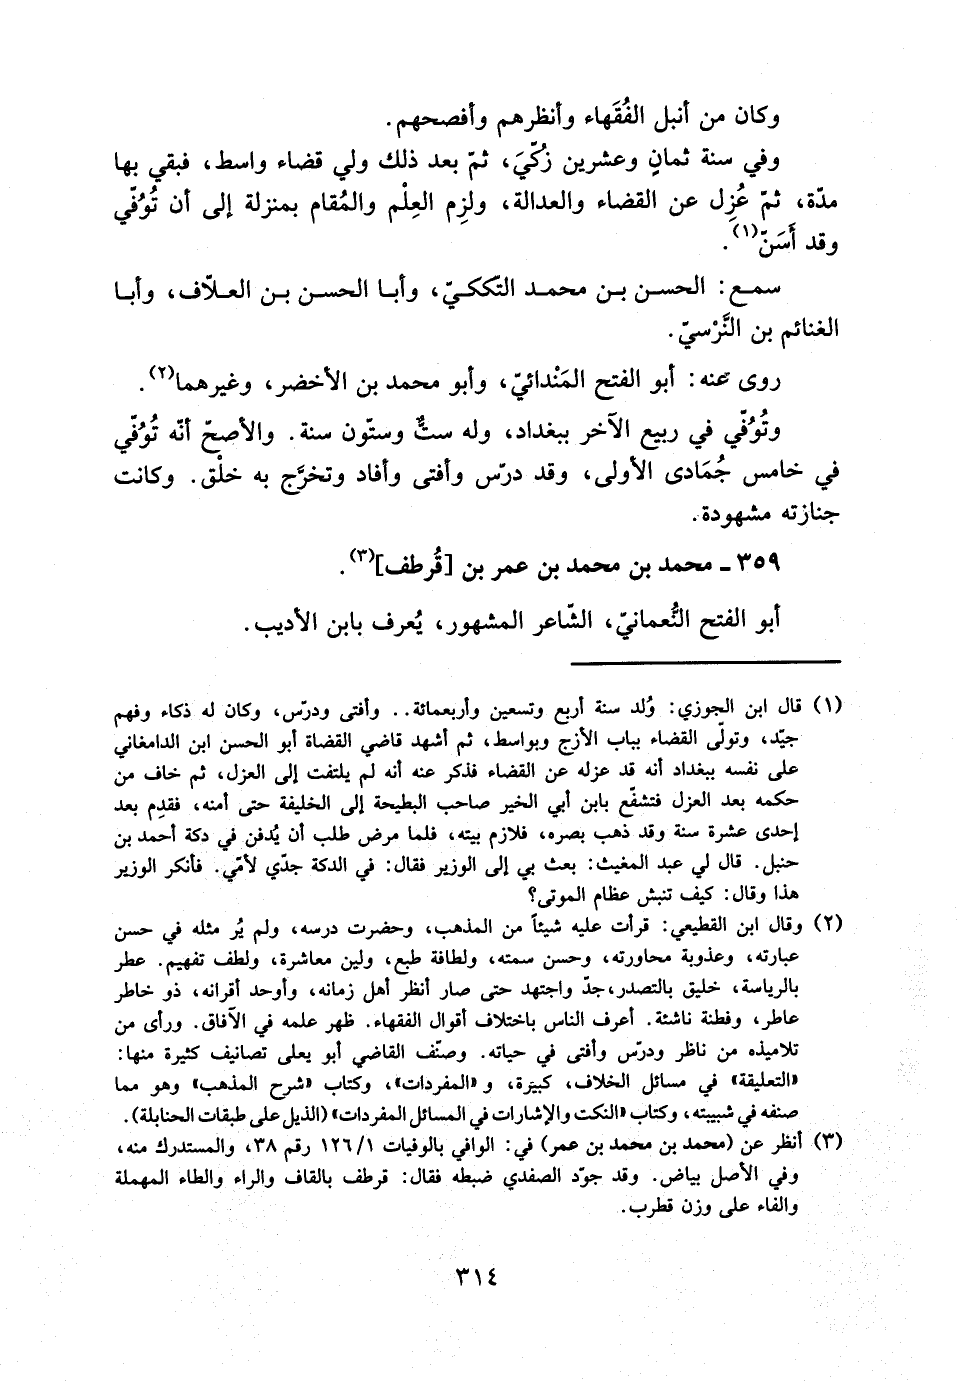 وكان من أنبل الفُقَهاء وأنظرهم وأفصحهم.
وفي سنة ثمانٍ وعشرين زُكّيَ، ثمّ بعد ذلك ولي قضاء واسط، فبقي بها
مدّة، ثمّ عُزِل عن القضاء والعدالة، ولزِم العِلْم والمُقام بمنزلة إلى أن تُوُفّي
وقد أَسَنّ(١).
سمع: الحسن بن محمد التّككيّ، وأبا الحسن بن العلاّف، وأبا
الغنائم بن النَّرْسيّ.
روى عنه: أبو الفتح المَنْدائيّ، وأبو محمد بن الأخضر، وغيرهما(٢).
وتُوُفّي في ربيع الآخر ببغداد، وله ستٌّ وستّون سنة. والأصحّ أنّه تُوُفّي
في خامس جُمَادى الأولى، وقد درّس وأفتى وأفاد وتخرَّج به خلْق. وكانت
جنازته مشهودة.
٣٥٩ ـ محمد بن محمد بن عمر بن [قُرطف](٣).
أبو الفتح النُّعمانيّ، الشّاعر المشهور، يُعرف بابن الأديب.
(١) قال ابن الجوزي: وُلد سنة أربع وتسعين وأربعمائة.. وأفتى ودرّس، وكان له ذكاء وفهم
جيّد، وتولّى القضاء بباب الأزج وبواسط، ثم أشهد قاضي القضاة أبو الحسن ابن الدامغاني
على نفسه ببغداد أنه قد عزله عن القضاء فذكر عنه أنه لم يلتفت إلى العزل، ثم خاف من
حكمه بعد العزل فتشفّع بابن أبي الخير صاحب البطيحة إلى الخليفة حتى أمنه، فقدِم بعد
إحدى عشرة سنة وقد ذهب بصره، فلازم بيته، فلما مرض طلب أن يُدفن في دكة أحمد بن
حنبل. قال لي عبد المغيث: بعث بي إلى الوزير فقال: في الدكة جدّي لأمّي. فأنكر الوزير
هذا وقال: كيف تنبش عظام الموتى؟
(٢) وقال ابن القطيعي: قرأت عليه شيئاً من المذهب، وحضرت درسه، ولم يُر مثله في حسن
عبارته، وعذوبة محاورته، وحسن سمته، ولطافة طبع، ولين معاشرة، ولطف تفهيم. عطر
بالرياسة، خليق بالتصدر،جدّ واجتهد حتى صار أنظر أهل زمانه، وأوحد أقرانه، ذو خاطر
عاطر، وفطنة ناشئة. أعرف الناس باختلاف أقوال الفقهاء. ظهر علمه في الآفاق. ورأى من
تلاميذه من ناظر ودرّس وأفتى في حياته. وصنّف القاضي أبو يعلى تصانيف كثيرة منها:
«التعليقة» في مسائل الخلاف، كبيرة، و «المفردات»، وكتاب «شرح المذهب» وهو مما
صنفه في شبيبته، وكتاب «النكت والإشارات في المسائل المفردات» (الذيل على طبقات الحنابلة).
(٣) أنظر عن (محمد بن محمد بن عمر) في: الوافي بالوفيات ١٢٦/١ رقم ٣٨، والمستدرك منه،
وفي الأصل بياض. وقد جوّد الصفدي ضبطه فقال: قرطف بالقاف والراء والطاء المهملة
والفاء على وزن قطرب.
٣١٤